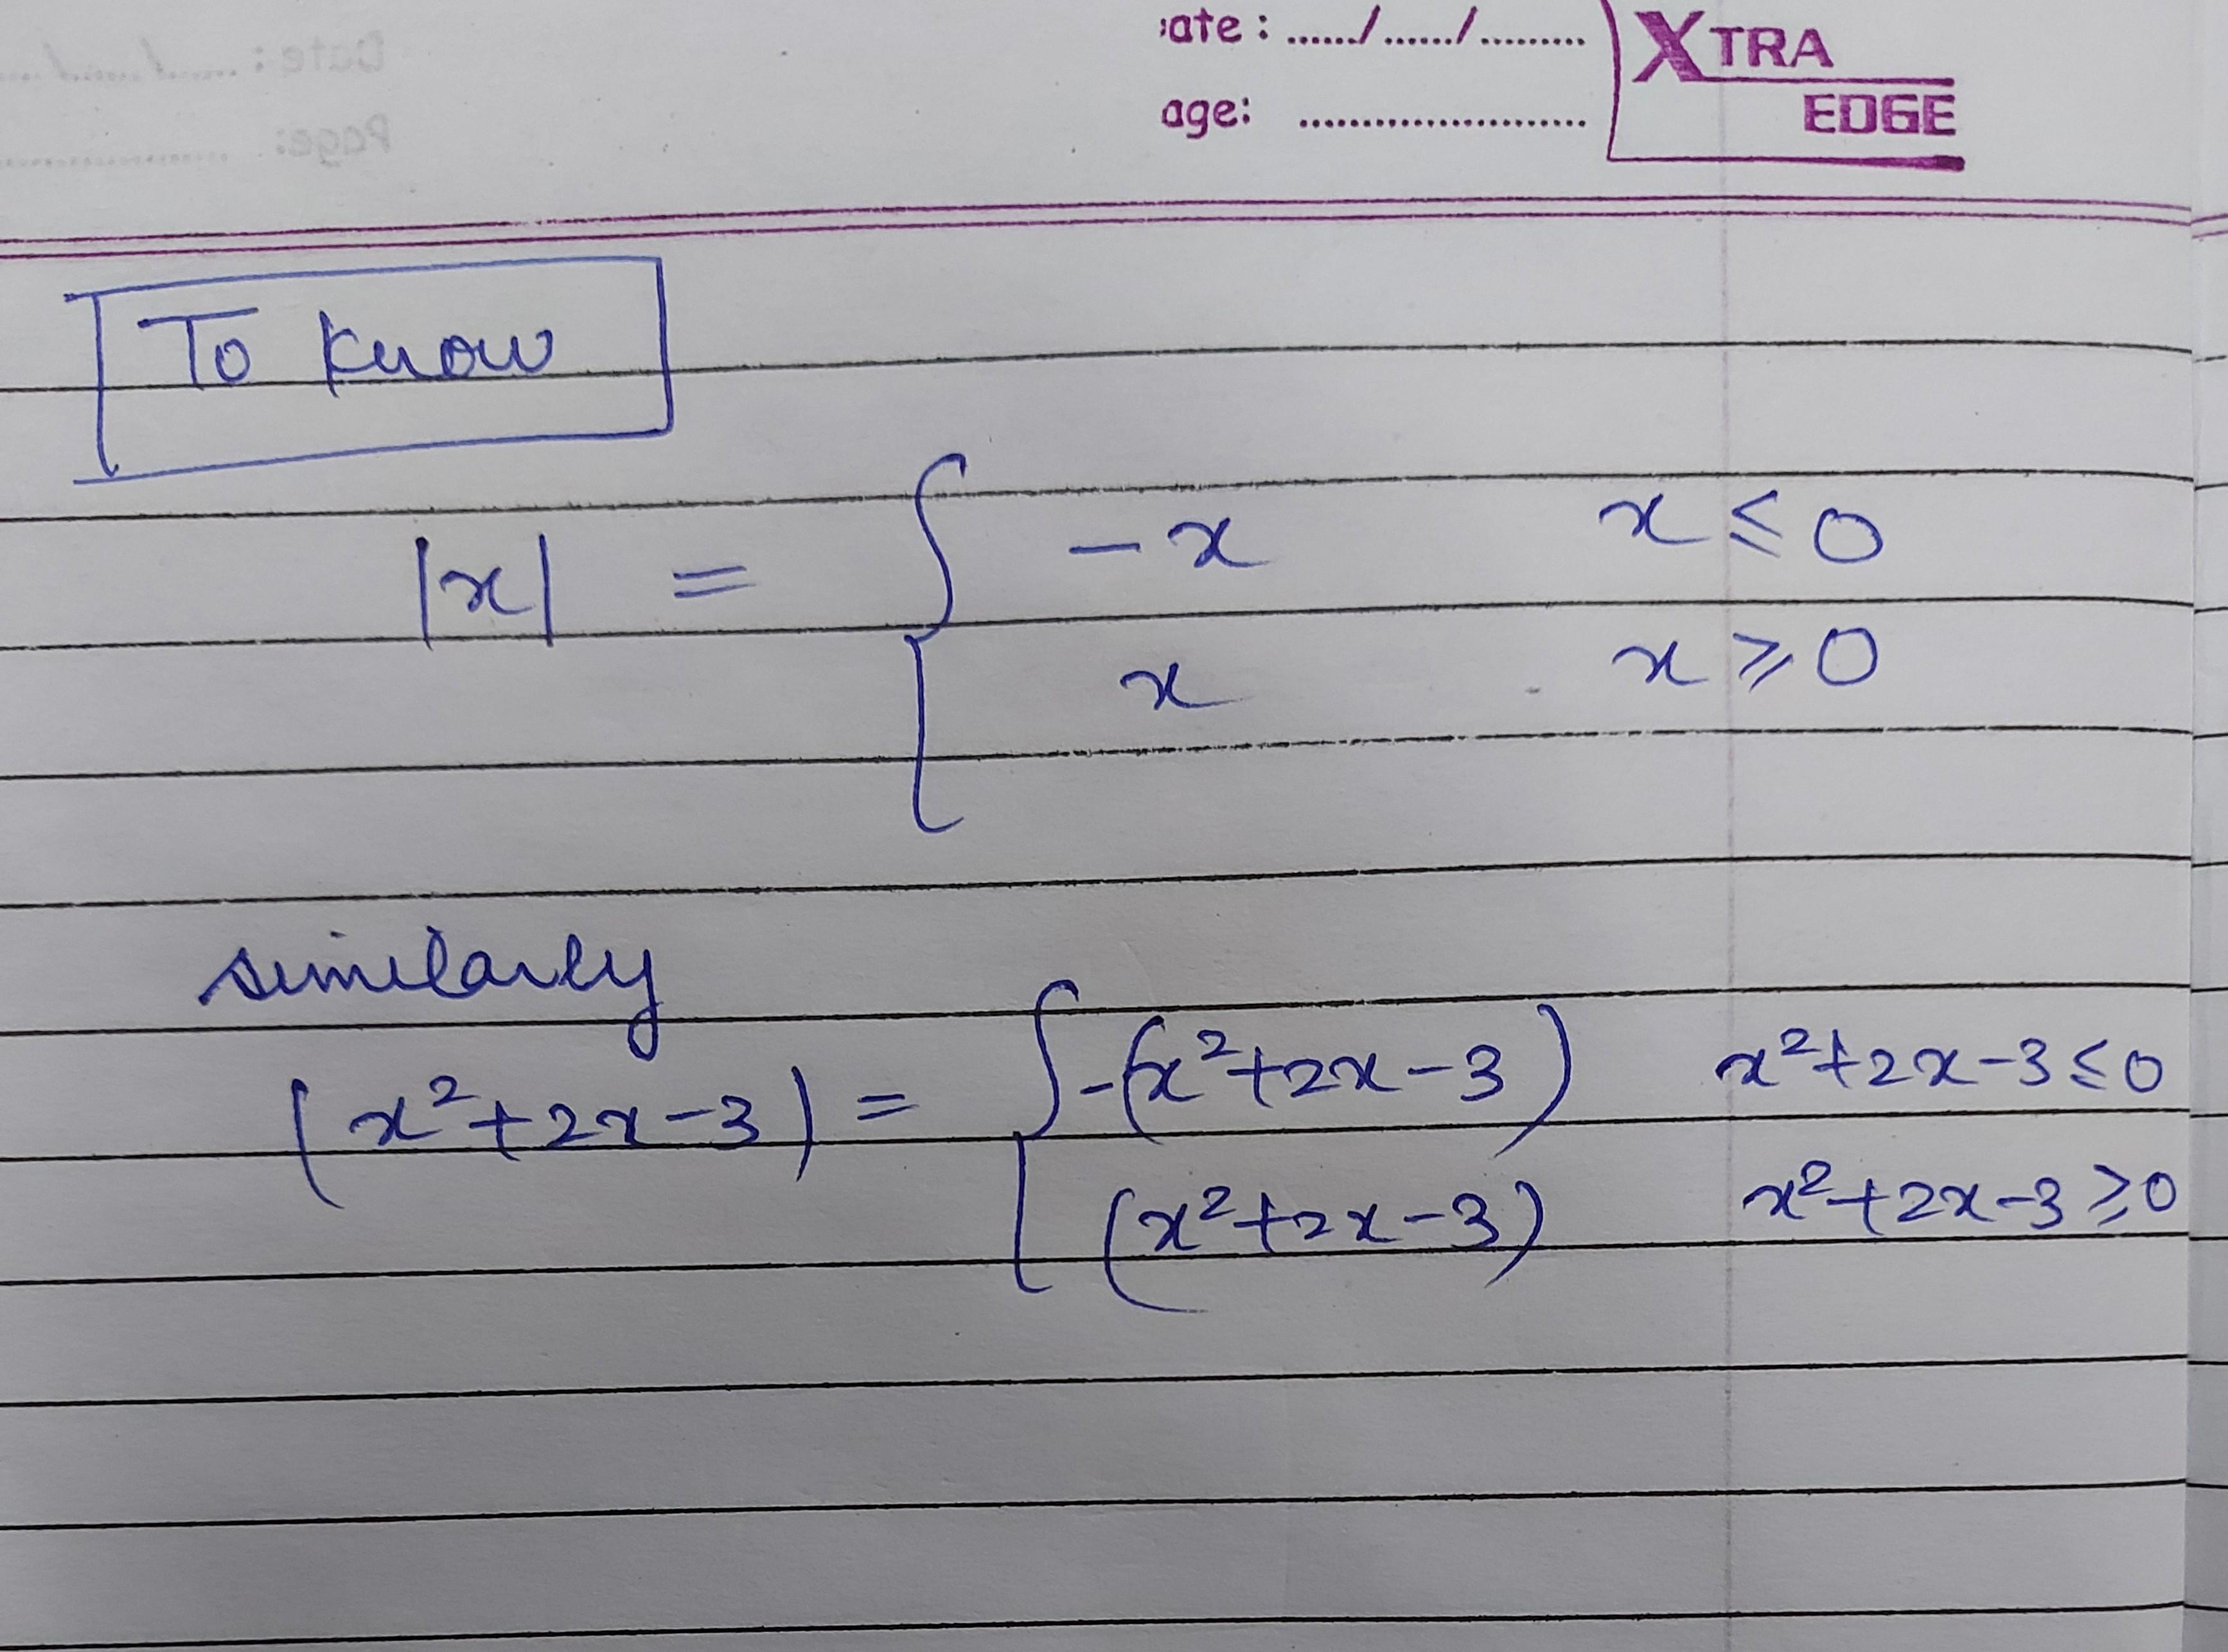 ate : ....../....../.........
XTRA
EDGE
age: ........................
To Know
|x| = { -x x ≤ 0
x x ≥ 0
similarly
(x²+2x-3) = { -(x²+2x-3) x²+2x-3 ≤ 0
(x²+2x-3) x²+2x-3 ≥ 0